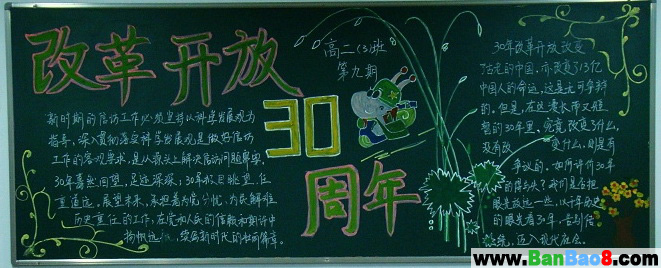 改革开放
30
周年
高二(3)班
第九期
新时期的信访工作必须坚持以科学发展观为
指导，深入贯彻落实科学发展观是做好信访
工作的客观要求，是从源头上解决信访问题
30年蓦然回望，足迹深深；30年放目眺望，任
重道远，展望未来，承担着为党分忧、为民解难
历史重任的工作，在党和人民的信赖和期许中
扬帆远 ，续写新时代的 篇章。
30年改革开放改变
了古老的中国，亦改变了13亿
中国人的命运，这是无可争辩
的。但是，在这漫长而又短
暂的30年里，究竟改变了什么，
没有改变什么，则是有
争议的。如何评价30年
的得与失？我们是否把
眼光放远一些，以十年历史
的眼光看30年，告别传
统，迈入现代社会。
www.BanBao8.com